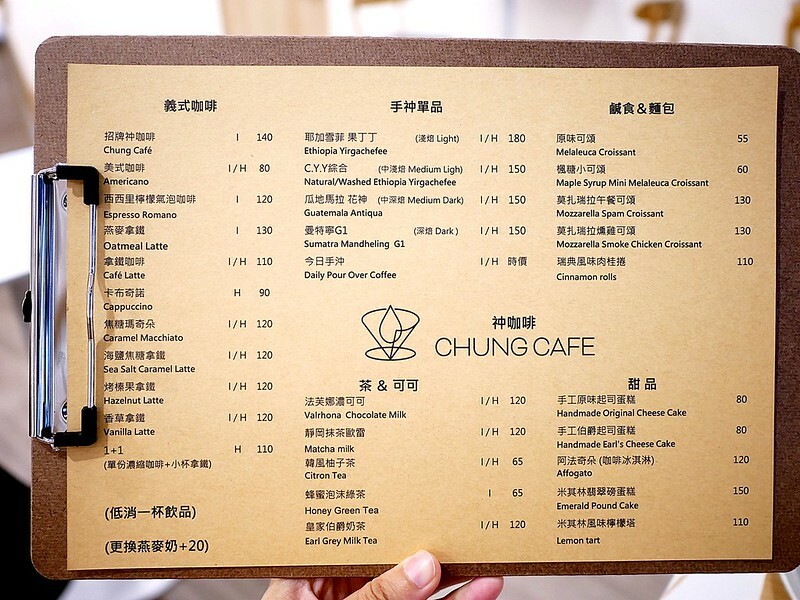 義式咖啡
招牌神咖啡 I 140
Chung Café
美式咖啡 I / H 80
Americano
西西里檸檬氣泡咖啡 I 120
Espresso Romano
燕麥拿鐵 I 130
Oatmeal Latte
拿鐵咖啡 I / H 110
Café Latte
卡布奇諾 H 90
Cappuccino
焦糖瑪奇朵 I / H 120
Caramel Macchiato
海鹽焦糖拿鐵 I / H 120
Sea Salt Caramel Latte
烤榛果拿鐵 I / H 120
Hazelnut Latte
香草拿鐵 I / H 120
Vanilla Latte
1+1 H 110
(單份濃縮咖啡+小杯拿鐵)
(低消一杯飲品)
(更換燕麥奶+20)
手沖單品
耶加雪菲 果丁丁 (淺焙 Light) I / H 180
Ethiopia Yirgachefee
C.Y.Y綜合 (中淺焙 Medium Ligh) I / H 150
Natural/Washed Ethiopia Yirgachefee
瓜地馬拉 花神 (中深焙 Medium Dark) I / H 150
Guatemala Antiqua
曼特寧G1 (深焙 Dark ) I / H 150
Sumatra Mandheling G1
今日手沖 I / H 時價
Daily Pour Over Coffee
神咖啡
CHUNG CAFE
茶 & 可可
法芙娜濃可可 I / H 120
Valrhona Chocolate Milk
靜岡抹茶歐蕾 I / H 120
Matcha milk
韓風柚子茶 I / H 65
Citron Tea
蜂蜜泡沫綠茶 I 65
Honey Green Tea
皇家伯爵奶茶 I / H 120
Earl Grey Milk Tea
鹹食&麵包
原味可頌 55
Melaleuca Croissant
楓糖小可頌 60
Maple Syrup Mini Melaleuca Croissant
莫扎瑞拉午餐可頌 130
Mozzarella Spam Croissant
莫扎瑞拉燻雞可頌 130
Mozzarella Smoke Chicken Croissant
瑞典風味肉桂捲 110
Cinnamon rolls
甜 品
手工原味起司蛋糕 80
Handmade Original Cheese Cake
手工伯爵起司蛋糕 80
Handmade Earl's Cheese Cake
阿法奇朵 (咖啡冰淇淋) 120
Affogato
米其林翡翠磅蛋糕 150
Emerald Pound Cake
米其林風味檸檬塔 110
Lemon tart